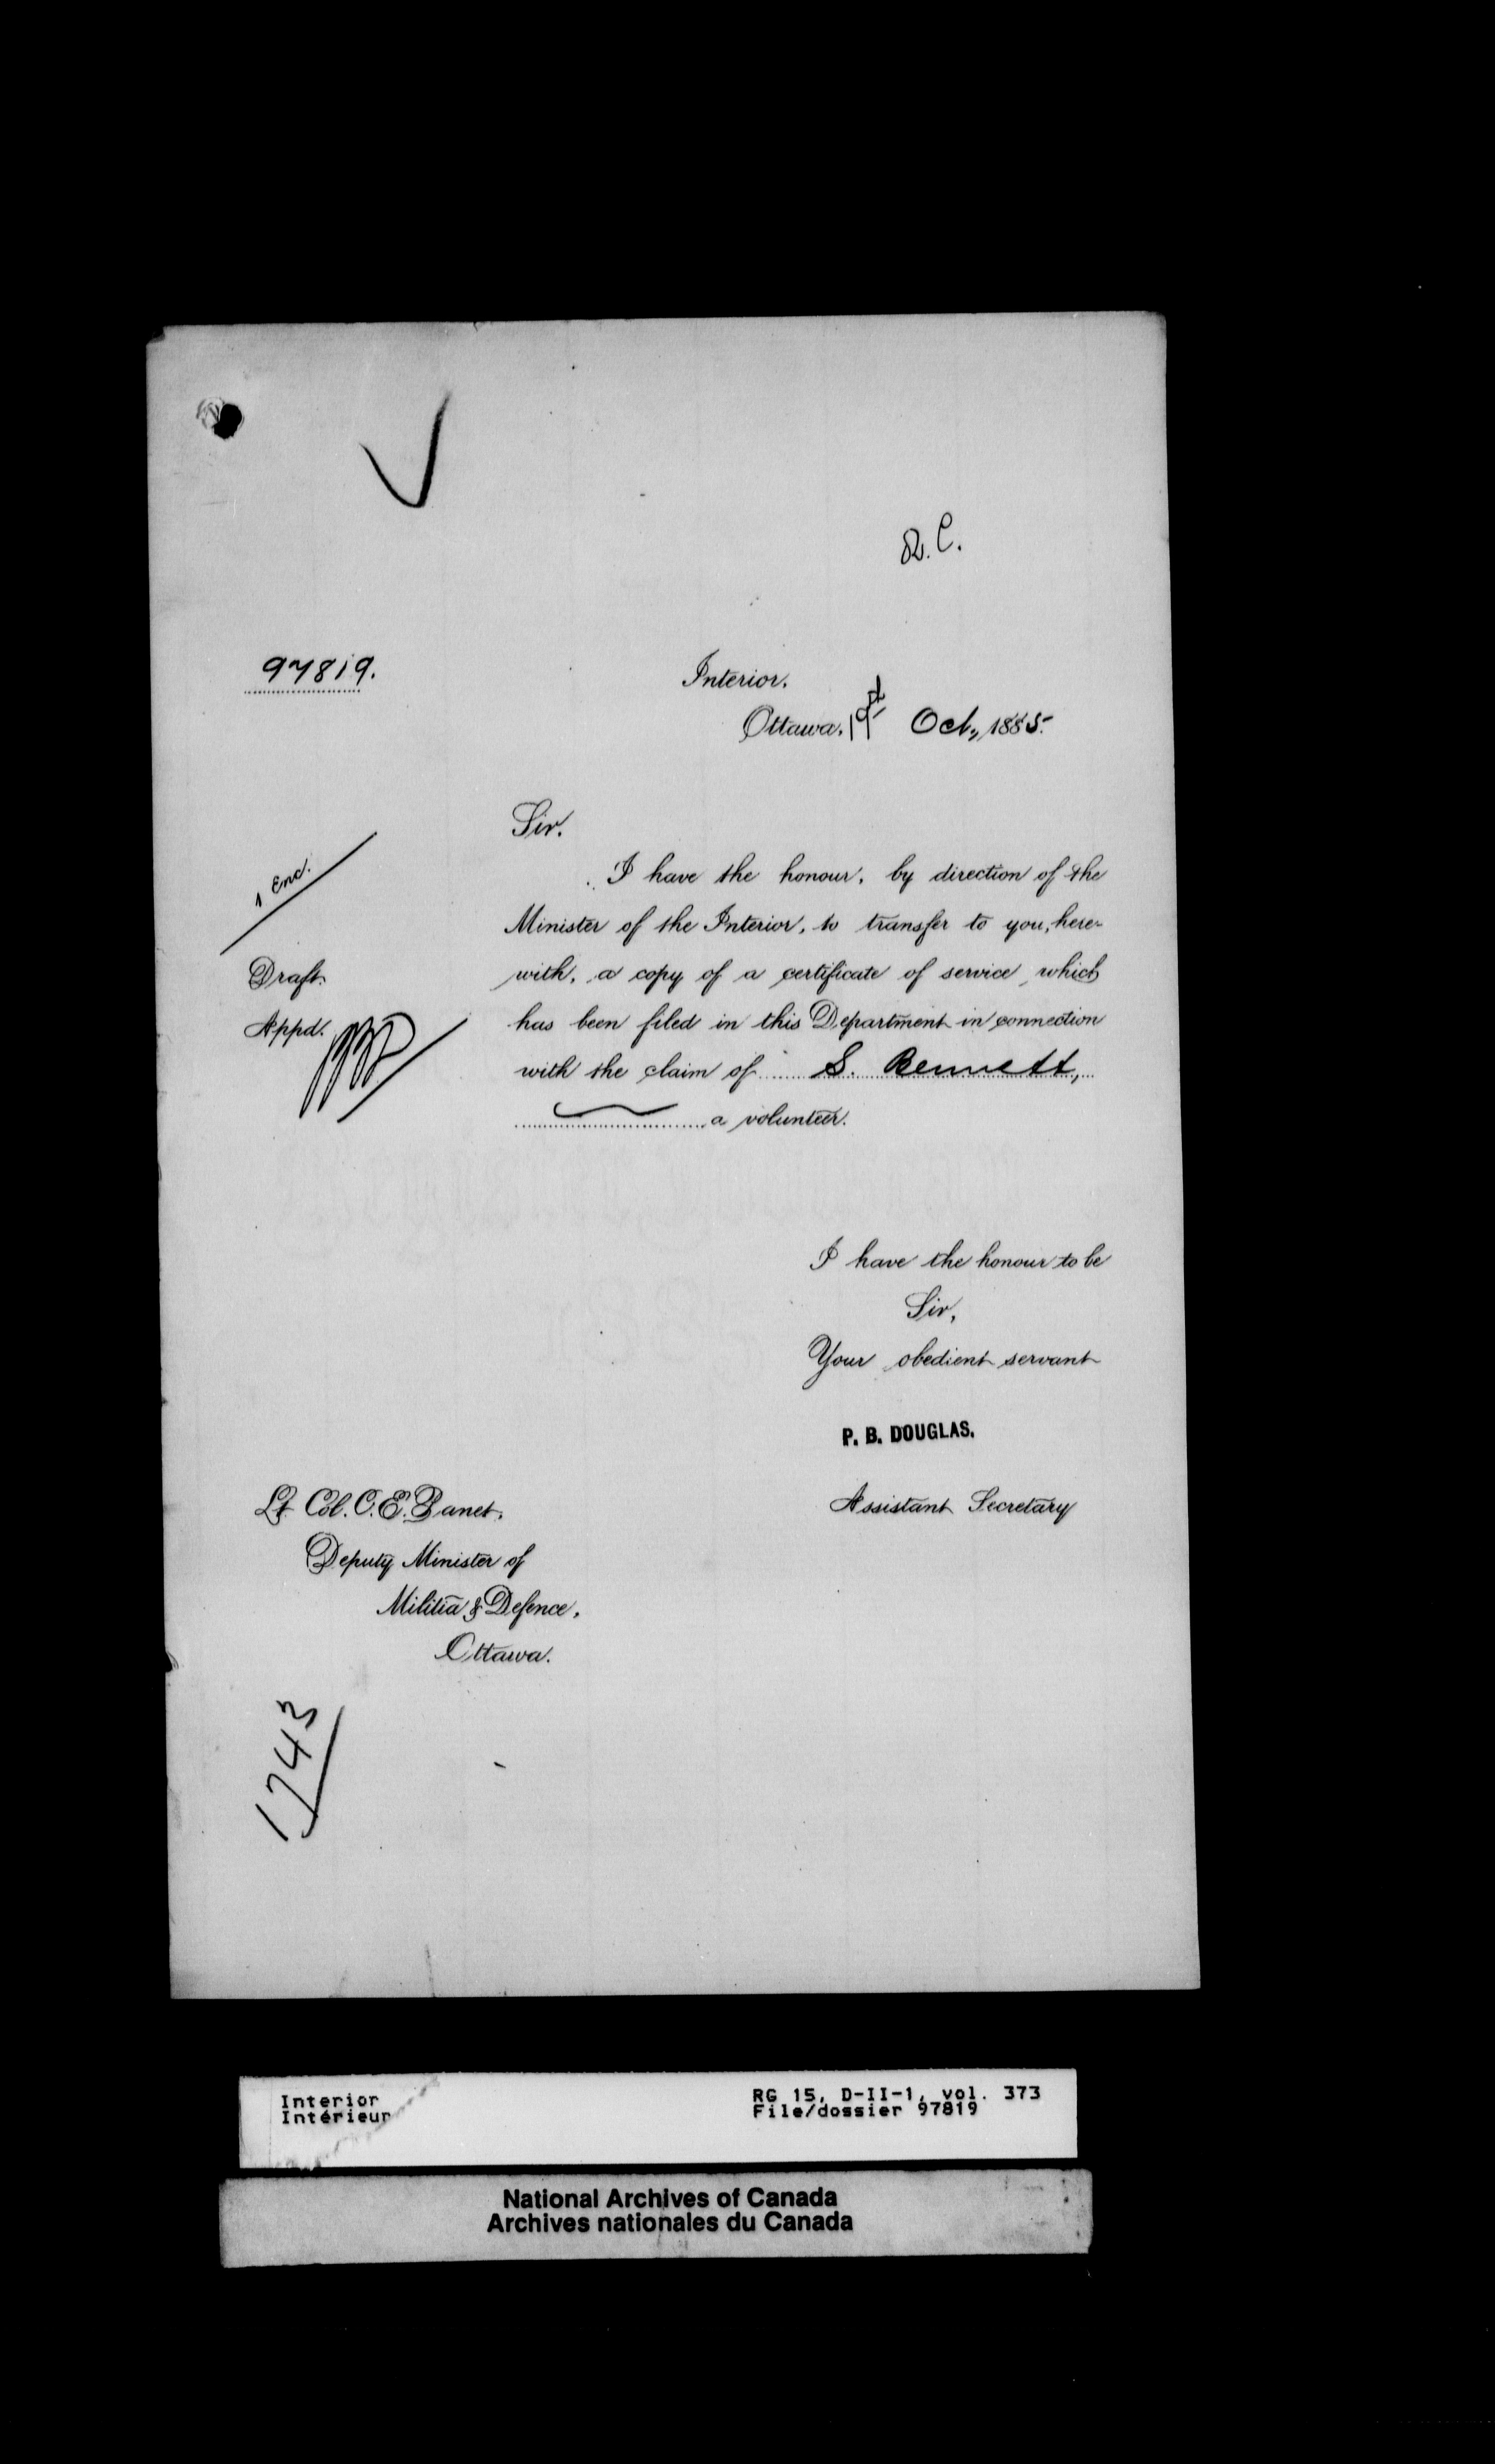 R. C.
97819.
Interior.
Ottawa, 19th Oct., 1885.
Sir.
1 Enc.
I have the honour, by direction of the
Minister of the Interior, to transfer to you, here-
with, a copy of a certificate of service which
has been filed in this Department in connection
with the claim of S. Bennett,
a volunteer.
Draft.
Appd.
I have the honour to be
Sir,
Your obedient servant
P. B. DOUGLAS.
Assistant Secretary
Lt Col. C. E. Panet,
Deputy Minister of
Militia & Defence,
Ottawa.
1743
Interior
Intérieur
RG 15, D-II-1, vol. 373
File/dossier 97819
National Archives of Canada
Archives nationales du Canada